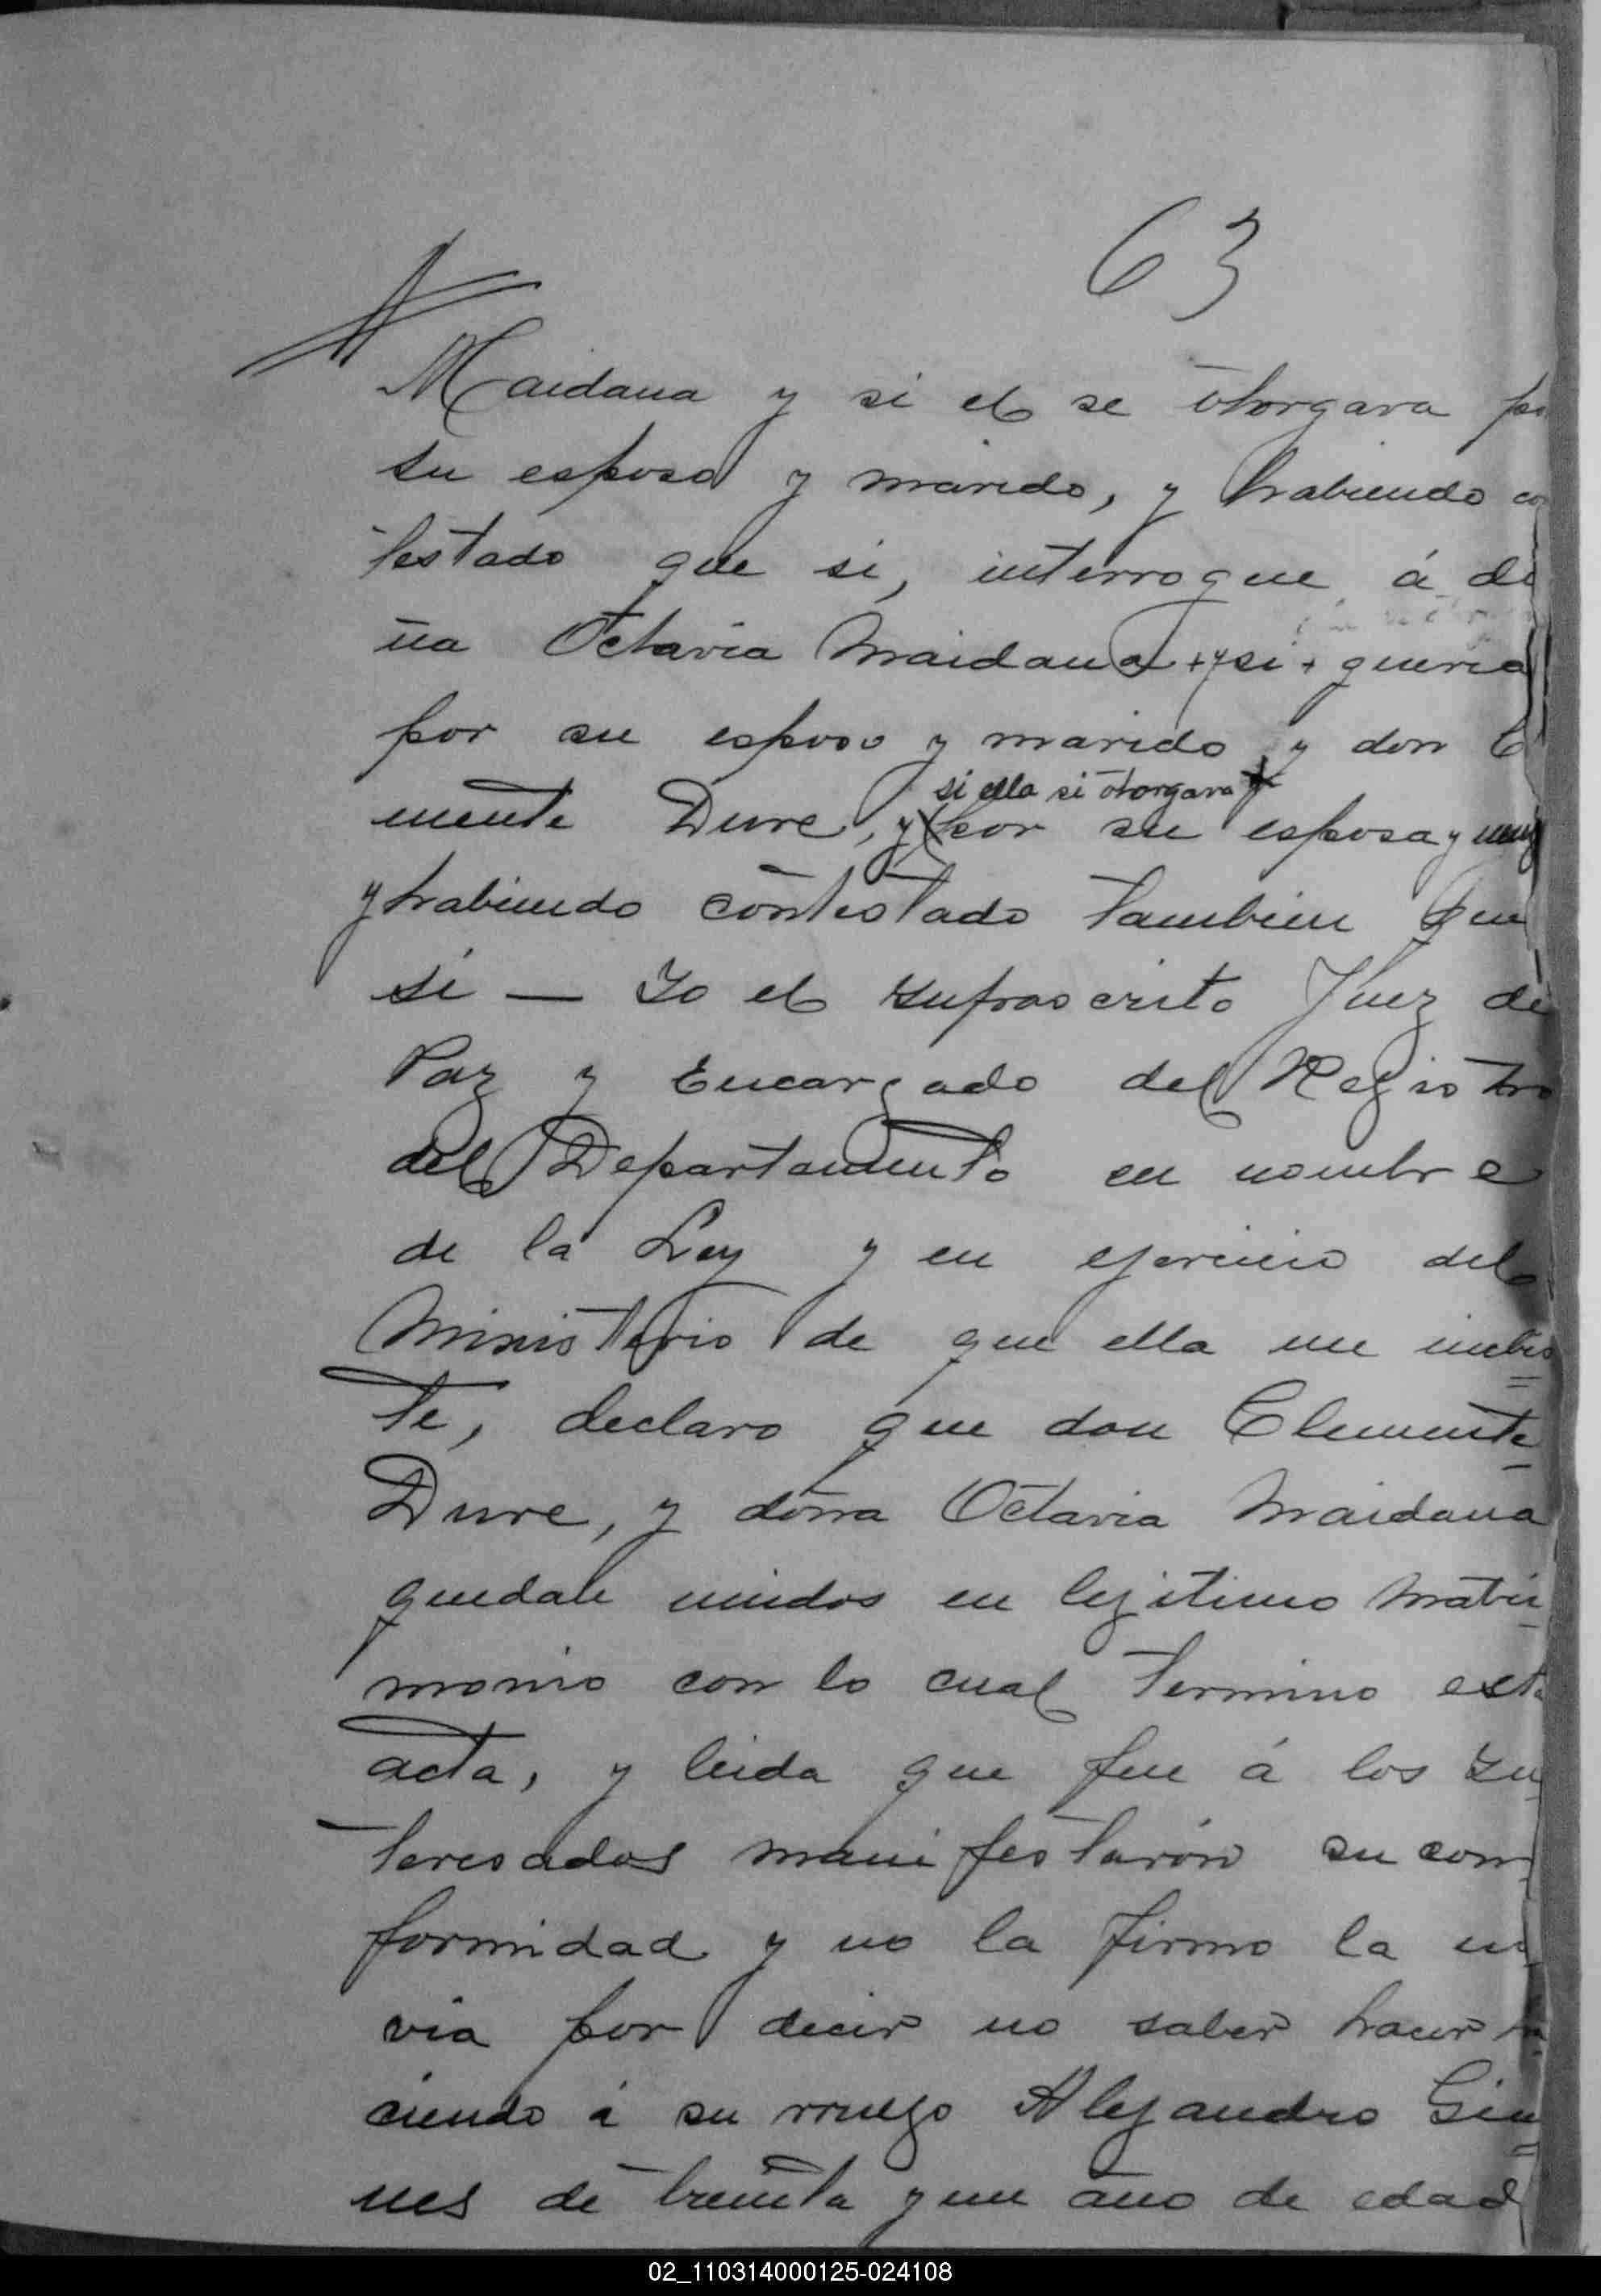 63
Maidana y si el se otorgara po
su esposo y marido, y habiendo co
testado que si, interrogue á do
ña Octavia Maidana + y si + queria
por su esposo y marido y don Cle
si ella si otorgara
mente Dure, y por su esposa y muj
y habiendo contestado tambien que
si — Yo el Infrascrito Juez de
Paz y Encargado del Registro
del Departamento en nombre
de la Ley y en ejercicio del
Ministerio de que ella me inbis
te, declaro que don Clemente
Dure, y donna Octavia Maidana
quedan unidos en legitimo matri
monio con lo cual termino esta
acta, y leida que fue á los In
teresados manifestarón su con
formidad y no la firmo la no
via por decir no saber hacer
ciendo á su rruego Alejandro Gim
nes de treinta y un año de edad
02_110314000125-024108